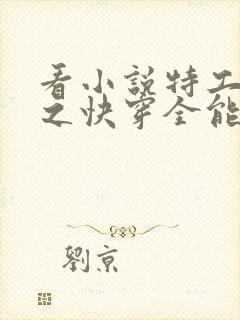 看小説特工
之快穿全能
劉京